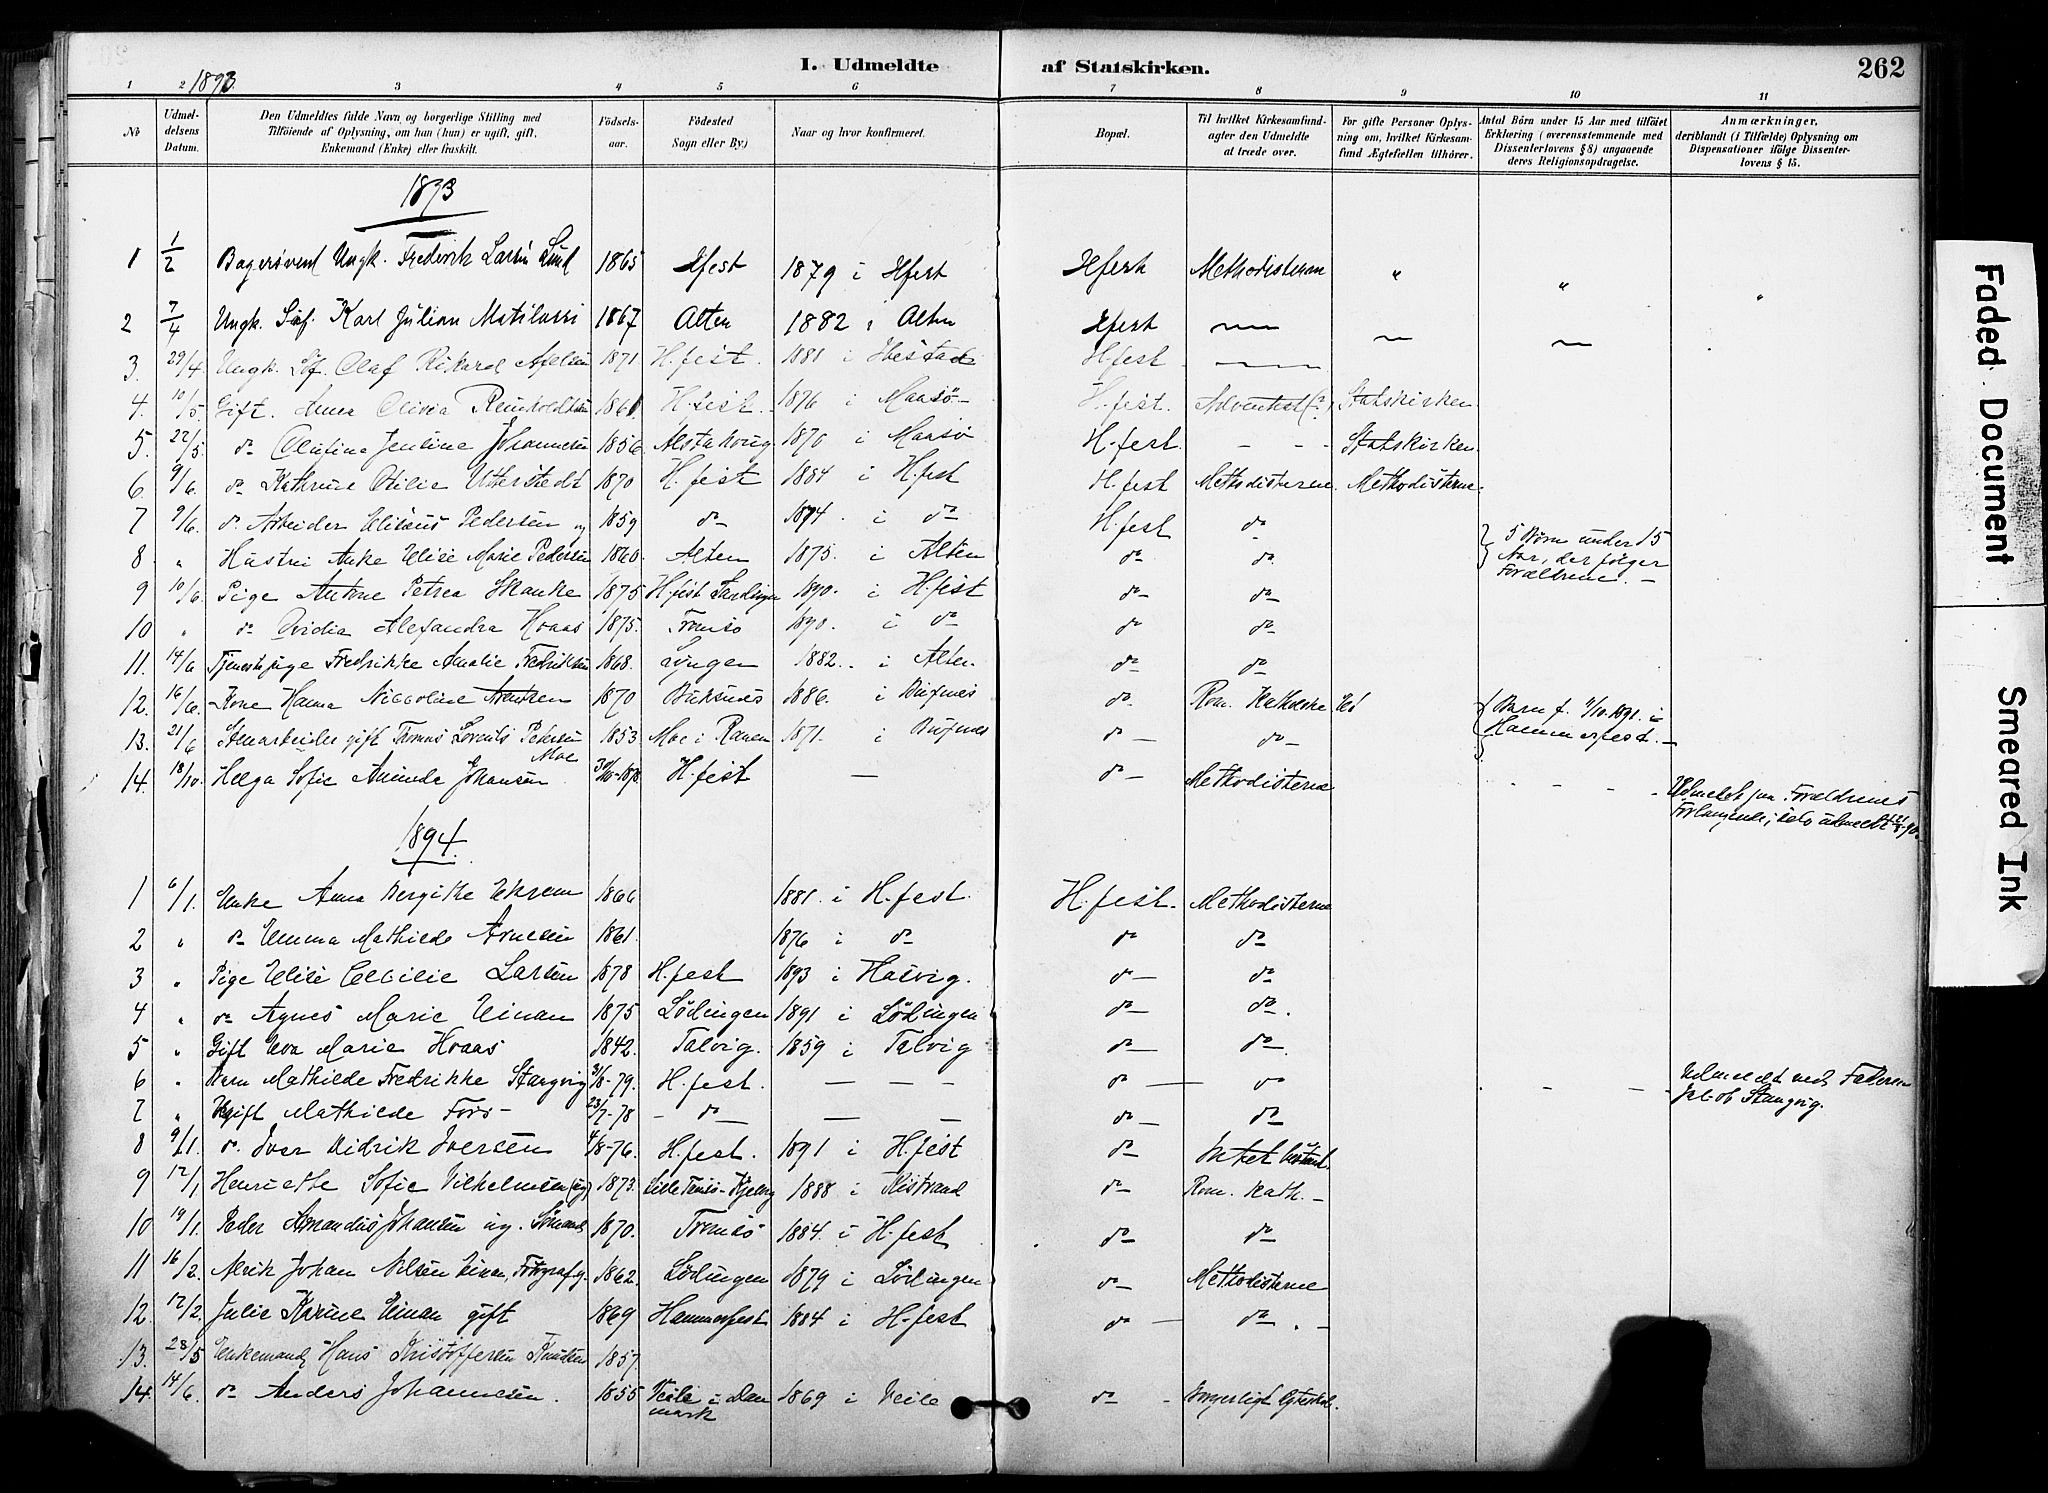 I. Udmeldte af Statskirken. 262
1 2 3 4 5 6 7 8 9 10 11
1893.
No
Udmeldelsens Datum.
Den Udmeldtes fulde Navn og borgerlige Stilling med
Tilföiende af Oplysning, om han (hun) er ugift, gift,
Enkemand (Enke) eller fraskilt.
Födselsaar.
Födested
Sogn eller By.)
Naar og hvor konfirmeret.
Bopæl.
Til hvilket Kirkesamfund
agter den Udmeldte
at træde over.
For gifte Personer Oplysning om, hvilket Kirkesamfund Ægtefællen tilhörer.
Antal Börn under 15 Aar med tilföiet
Erklæring (overensstemmende med
Dissenterlovens § 8) angaaende
deres Religionsopdragelse.
Anmærkninger,
deriblandt (i Tilfælde) Oplysning om
Dispensationer ifölge Dissenterlovens § 15.
1893
1 1/2 Bagersvend Ungk. Frederik Larsen Lund 1865 Hfest 1879 i Hfest Hfest Methodisterne " " "
2 7/4 Ungk. Karl Julian Matilassi 1867 Alten 1882 i Alten Hfest
3. 29/4 Ungk. Olaf Rikard 1871 H.fest. 1881 i Ibestad H.fest
4. 10/5 Gift. Anna Olivia Reinholdtsen H.fest. 1876 i Maasö H.fest. Adventist(?) Statskirken
5. 22/5 do Olufine Jentine Johannesen 1856. Alstahoug 1870 i Maasö H.fest. - - Statskirken.
6. 9/6. do Kathrine Otilie Utterstedt 1870 H.fest 1884 i H.fest H.fest Methodisterne. Methodisterne.
7 9/6. do Arbeider Elisæus Pedersen og 1859 do 1874. i do H.fest do 5 Börn under 15
8 " Hustru Anke Elise Marie Pedersen 1860. Alten 1875. i Alten do do. Aar, der fölger
Forældrene. -
9 10/6. Pige Antone Petrea Skanke 1875 H.fest 1890. i H.fest do do
10 " do Ovidia Alexandra Hoaas 1875. Tromsö 1890. i do do do
11. 14/6 Tjenestepige Fredrikke Amalie Fredriksen 1868. Lyngen 1882.. i Alten. do do
12. 16/6. Kone Hanna Niccoline Arntzen 1870 Buksnes 1886. i Buxnes do. Rom. Katholske Barn f. 1891. i
13. 21/6 Stenarbeider gift Thomas Lorents Pedersen Moe 1853 Moe i Ranen 1871. i Buxnes do do Hammerfest. -
14. 18/10. Helga Sofie Aminda Johansen H.fest - do Methodisterne - - - - Udmeldt paa Forældrenes
Forlangende,
1894.
1 6/1. Enke Anna Bergitke Ekrem 1866 1881. i H.fest. H.fest. Methodisterne
2 " do Emma Mathilde Arnesen 1861. 1876 i do do do
3 " Pige Elise Cecilie Larsen 1878 H.fest 1893 i Hasvig. do do
4 " do Agnes Marie Einan 1875 Lödingen 1891 i Lödingen do do.
5 " Gift Eva Marie Hoaas 1842. Talvig. 1859 i Talvig do do
6 " Barn Mathilde Fredrikke Stangvig 3/8-79. H.fest. - - - do do - - Udmeldt ved Faderen
Jakob Stangvig.
7 " Ugift Mathilde Fors- 23/7-78 - do - - do do
8 9/1. do. Iver Didrik Iversen 4/8-76. H.fest. 1891 i H.fest do
9 12/1 Henriette Sofie Vilhelmsen (ug) 1873. 1888 i Kistrand do Rom. Kath. -
10 19/1. Peder Amandus Johansen ug. Sömand 1870. Tromsö 1884. i H.fest do do
11 16/2. Alrik Johan Nilsen Einan, Fotograf g. 1862. Lödingen 1879 i Lödingen do Methodisterne
12. 12/2. Julie Karine Einan gift 1869 Hammerfest 1884 i H.fest do do
13. 28/5 Enkemand Hans Kristoffersen Knudsen 1857.
14. 14/6. do Anders Johannesen. 1855 Veile i Danmark 1869 i Veile do - Borgerligt
Faded Document
Smeared Ink